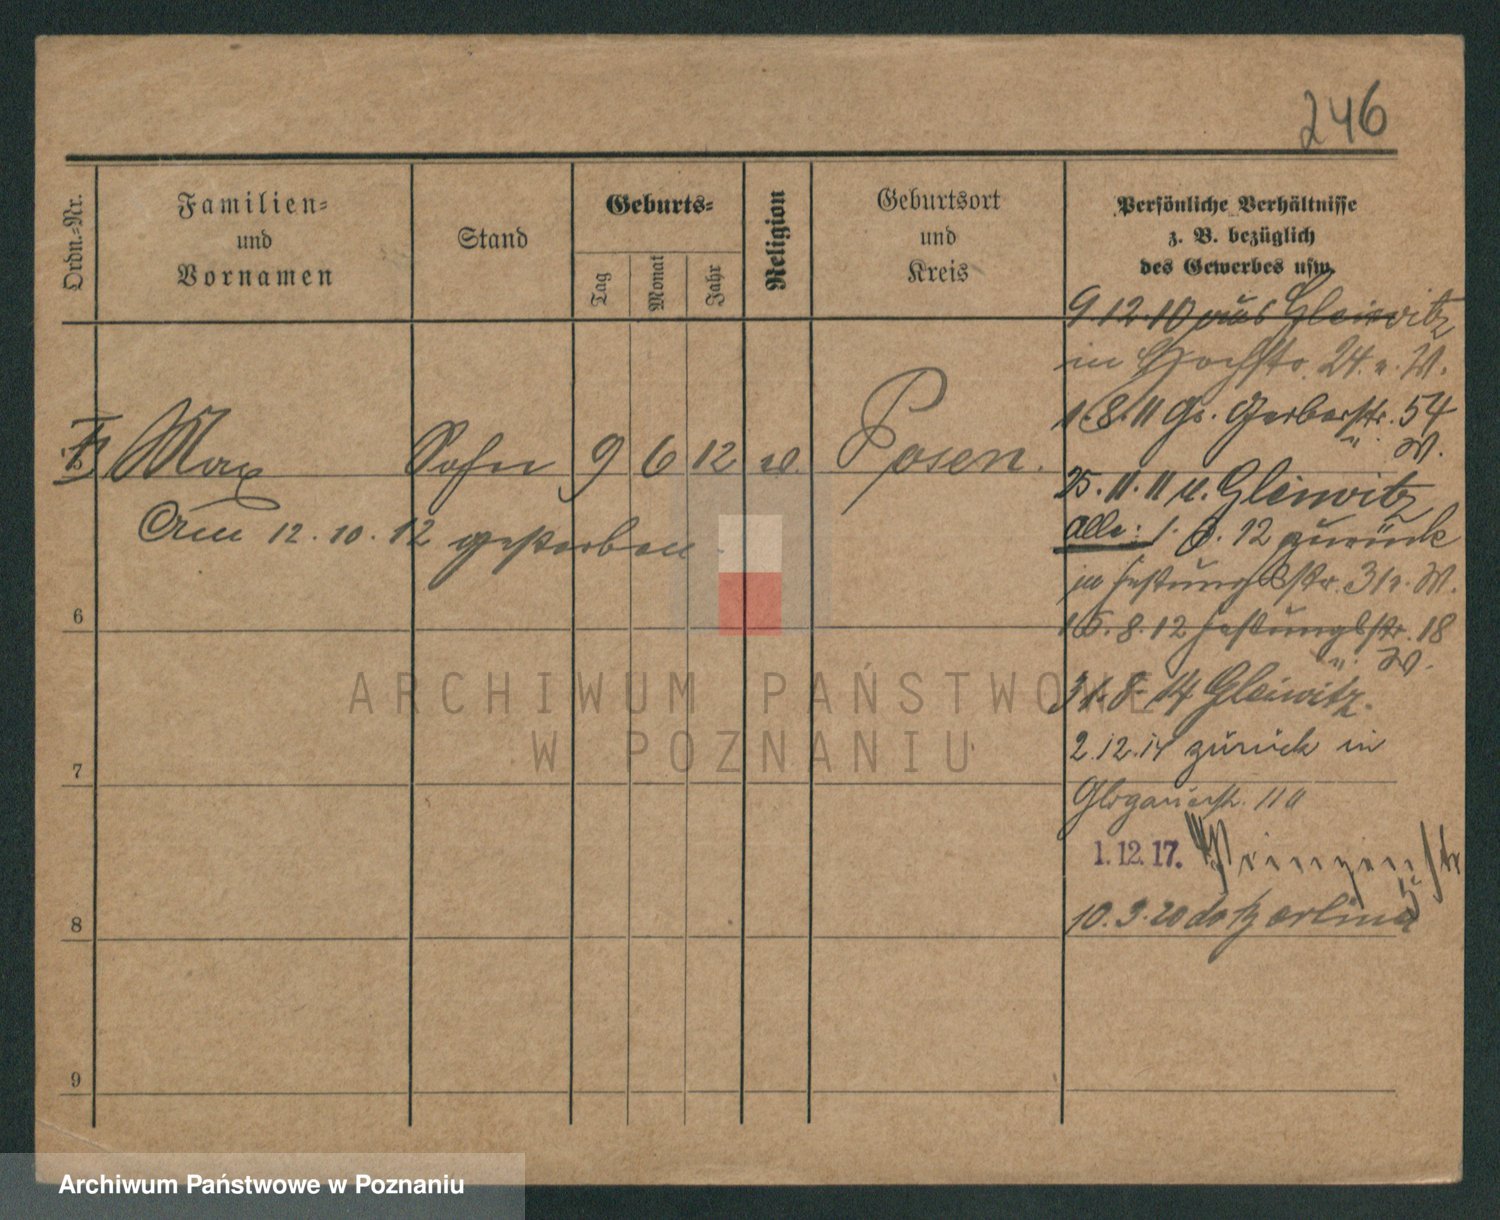 246
Ordn.-Nr.
Familien-
und
Vornamen
Stand
Geburts-
Tag
Monat
Jahr
Religion
Geburtsort
und
Kreis
Persönliche Verhältnisse
z. B. bezüglich
des Gewerbes usw.
9.12.10 aus Gleiwitz
in Hochstr. 24.
1.8.11 Gr. Gerberstr. 54
W.
Max Sohn 9 6 12 Posen.
25.11.11 n. Gleiwitz
Am 12.10.12 gestorben
alle: 1. 6. 12 zurück
in Festungsstr. 31
6
15.8.12 Festungsstr. 18
W.
31.8.14 Gleiwitz.
2.12.14 zurück in
7
Glogauerstr. 110
1.12.17. Prinzenstr
10.3.20
8
9
ARCHIWUM PAŃSTWOWE
W POZNANIU
Archiwum Państwowe w Poznaniu